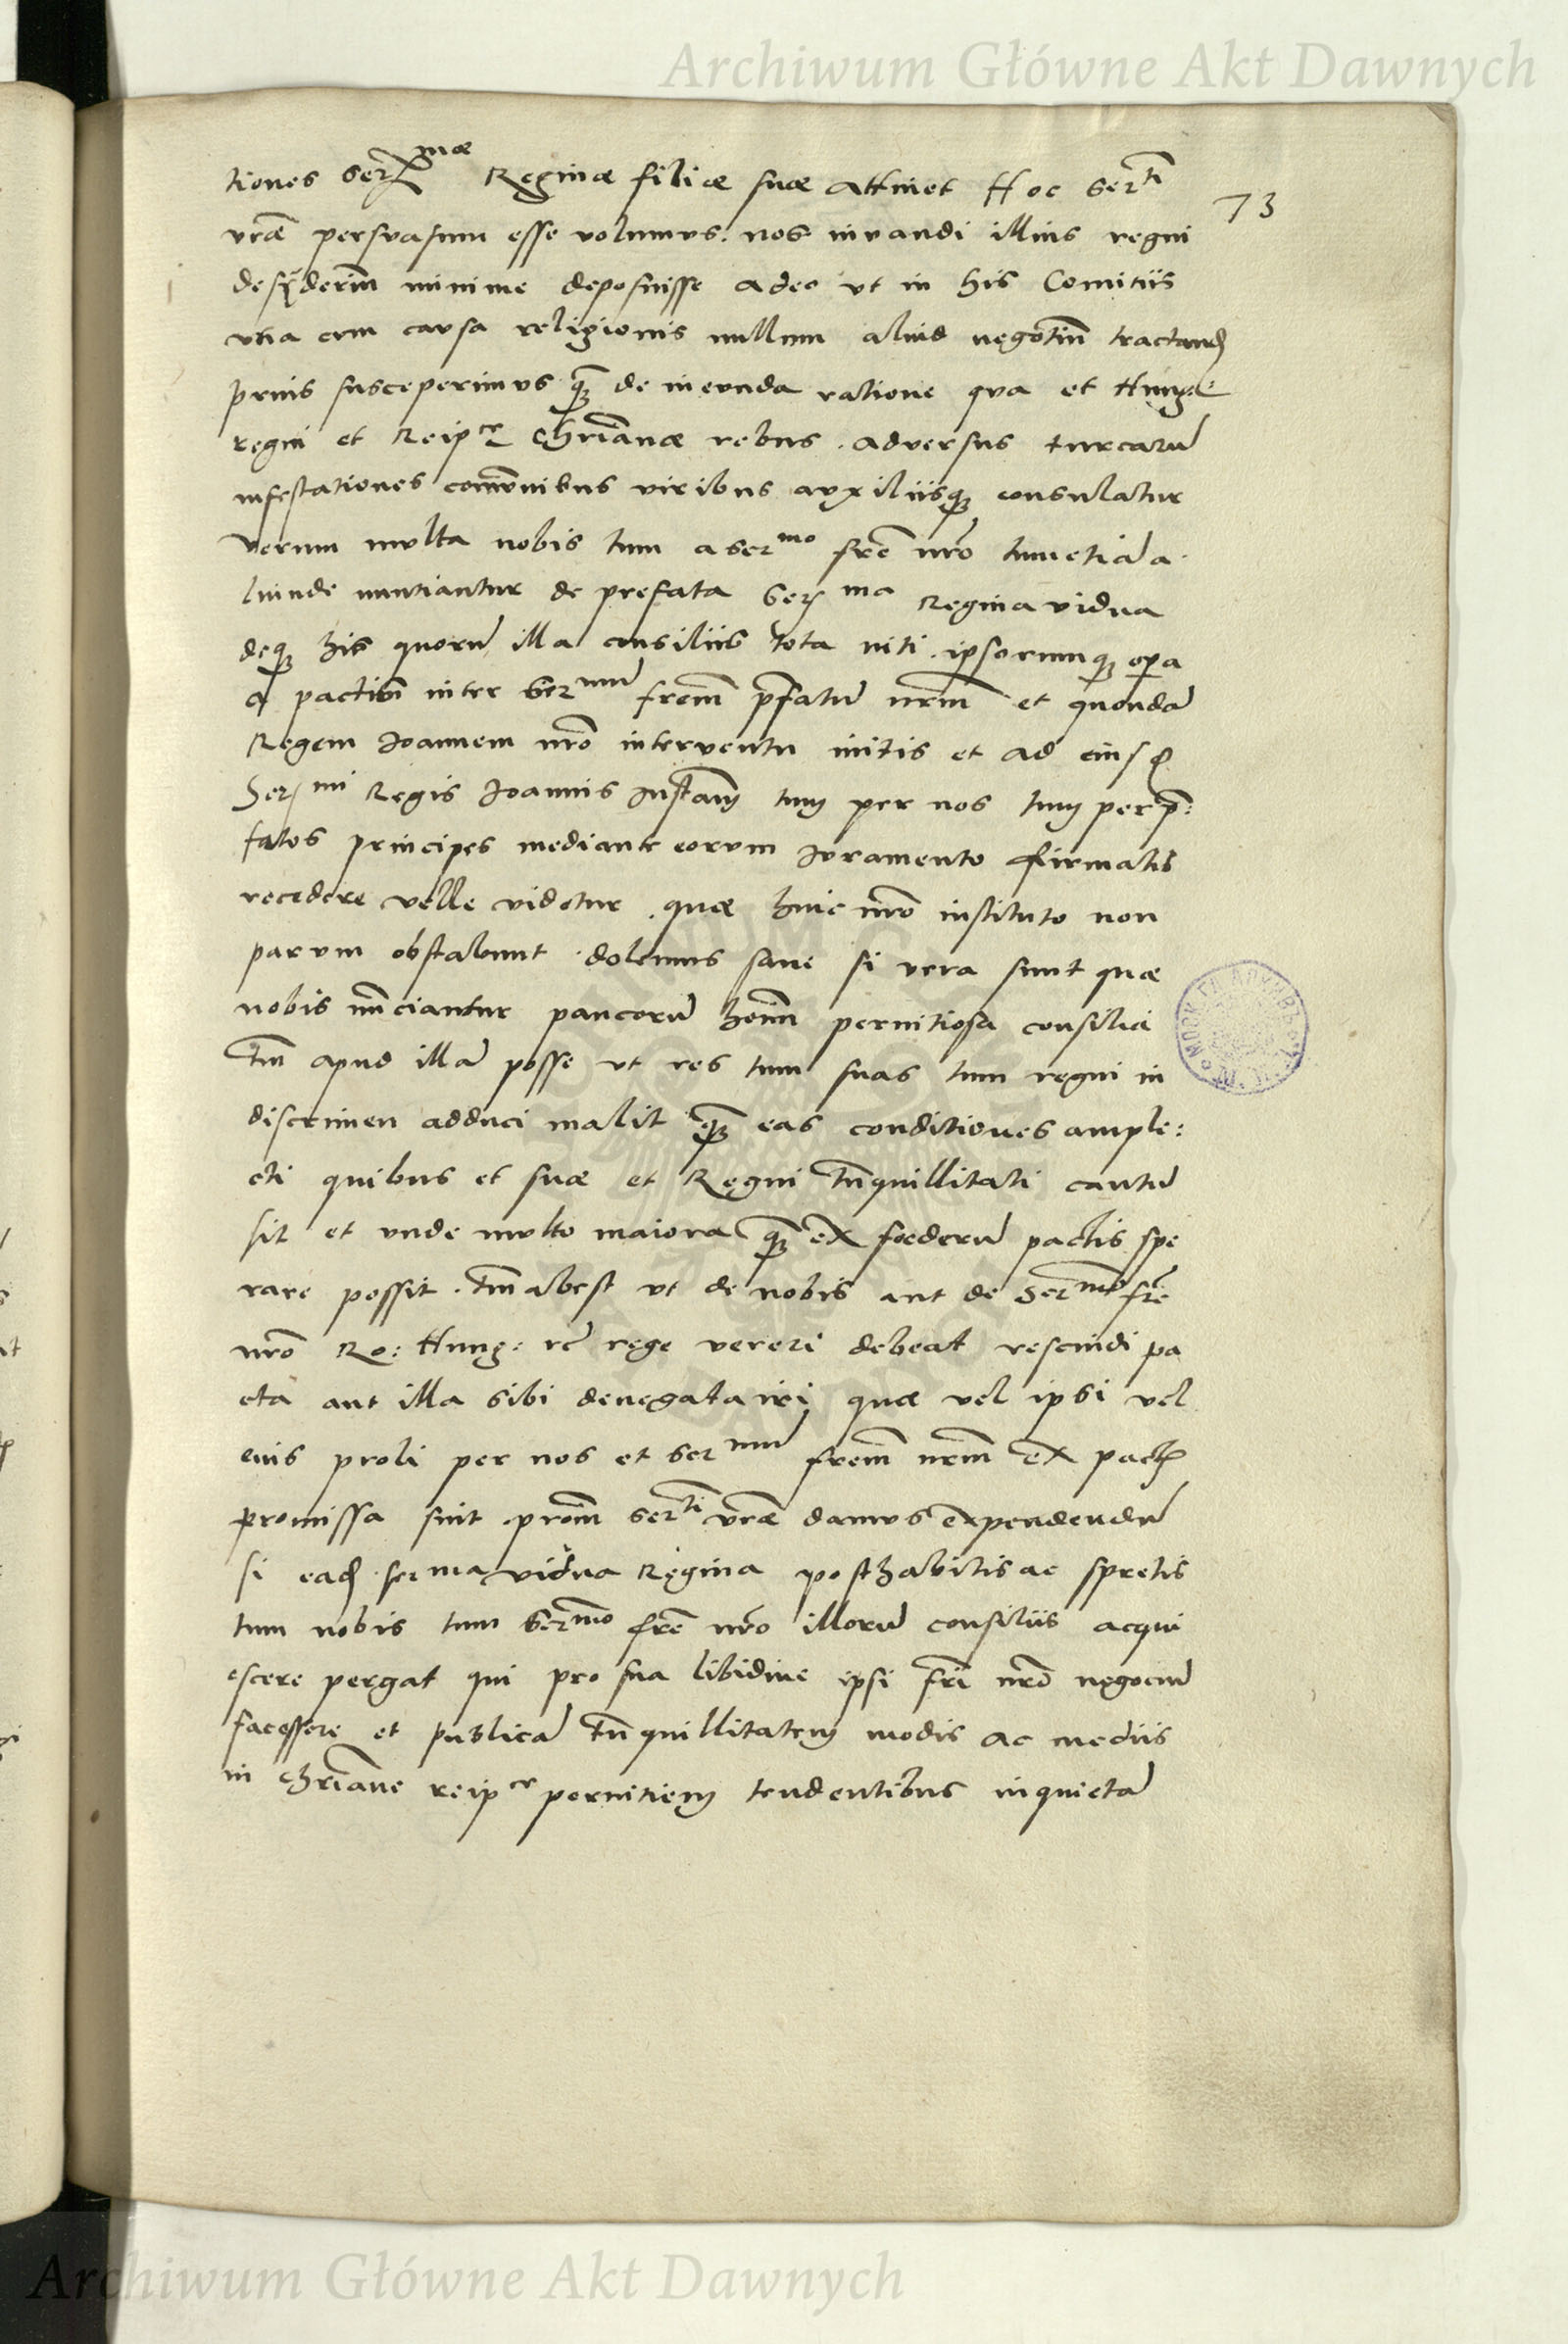 Archiwum Główne Akt Dawnych
73
tiones Ser^mae Reginæ filiæ suæ attinet Hoc Ser^ti
vr̄æ persuasum esse volumus. nos iuuandi illius regni
desyderiū minime deposuisse adeo vt in his Comitiis
vna cum causa religionis nullum aliud negotiū tractand
prius susceperimus q̄ȝ de ineunda ratione qua et Hung:
regni et Reip^ce Chrīanæ rebus. aduersus turcarū
infestationes com̄unibus viribus auxiliisqȝ consulatur
Verum multa nobis tum a Ser^mo frē nr̄o tum etiā a
liunde nuntiantur de prefata Ser^ma Regina vidua
deqȝ his quorū illa consiliis tota niti. ipsorumqȝ opa
a pactiōn inter Ser^mū frem̄ p̄fatū nrm̄ et quondā
Regem Ioannem nr̄o interuentu initis et ad eiusd
Ser^mi Regis Ioannis Instam̄ tum per nos tum per p̄:
fatos principes mediante eorum Iuramento firmatis
recedere velle videtur. quæ huic nr̄o instituto non
parum obstabunt. dolemus sane si vera sunt quæ
nobis nūciantur paucorū hoīm pernitiosa consilia
tm̄ apud illā posse vt res tum suas tum regni in
discrimen adduci malit q̄ȝ eas conditiones ample:
cti quibus et suæ et Regni trāquillitati cautū
sit et vnde multo maiora q̄ȝ ex foederū pactis spe
rare possit. tm̄ abest vt de nobis aut de Ser^mo frē
nr̄o Ro: Hung: rē rege vereri debeat rescindi pa
cta aut illa sibi denegata iri quæ vel ipsi vel
eius proli per nos et Ser^mū frem̄ nrm̄ ex pact
promissa sint. proin̄ Ser^ti vr̄æ damus expendendū
si ead ser^ma vidua Regina posthabitis ac spretis
tum nobis tum Ser^mo frē nr̄o illorū consiliis acqui
escere pergat qui pro sua libidine ipsi frī nr̄o negociū
facessere et publicā trāquillitatem modis ac mediis
in Chrīane reip^ce pernitiem tendentibus inquietā
Archiwum Główne Akt Dawnych